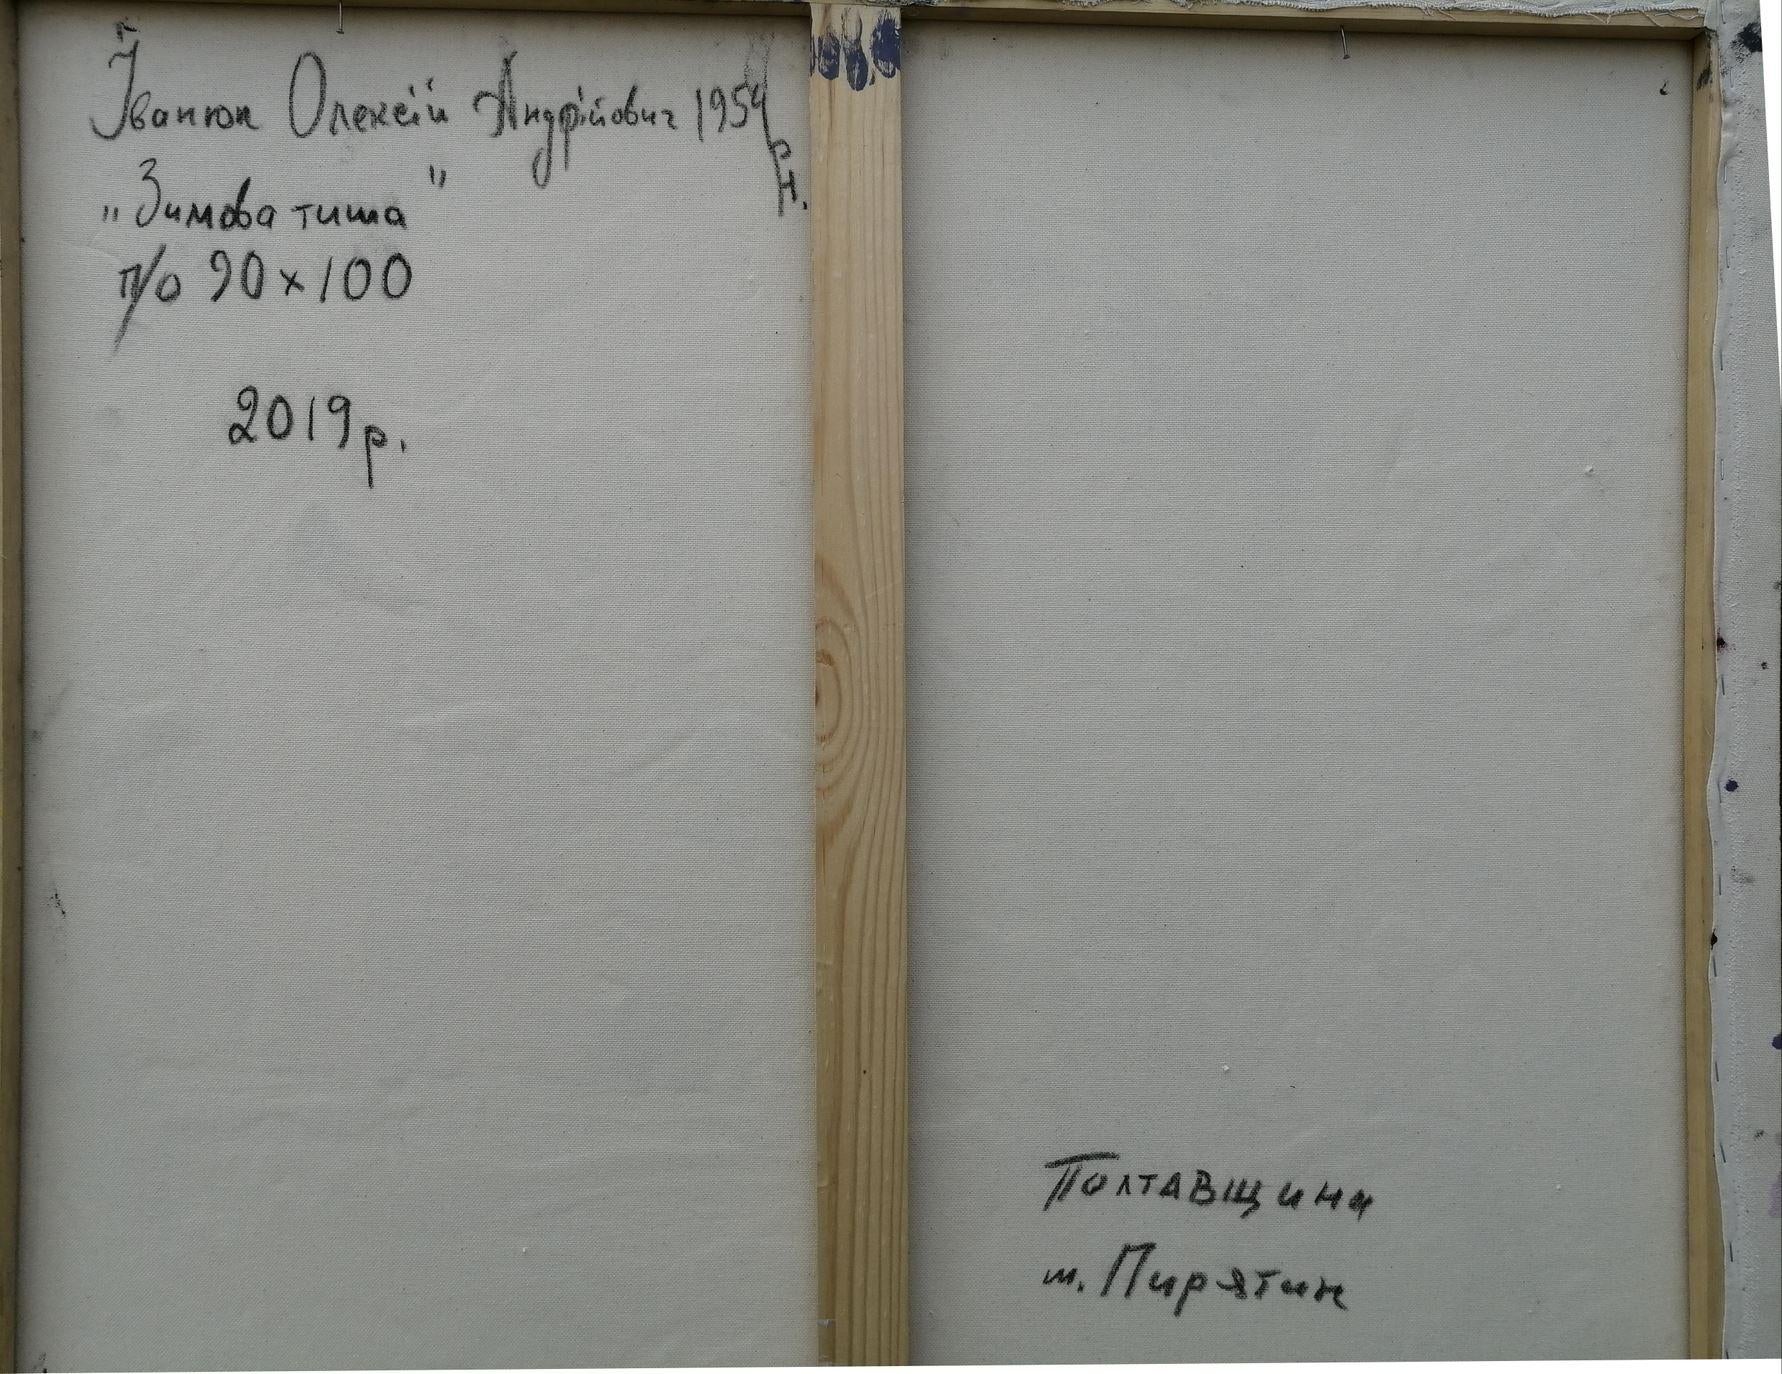 Іванюк Олексій Андрійович 1954 р.н.
„Зимова тиша"
п/о 90х100
2019р.
Полтавщина
м. Пирятин